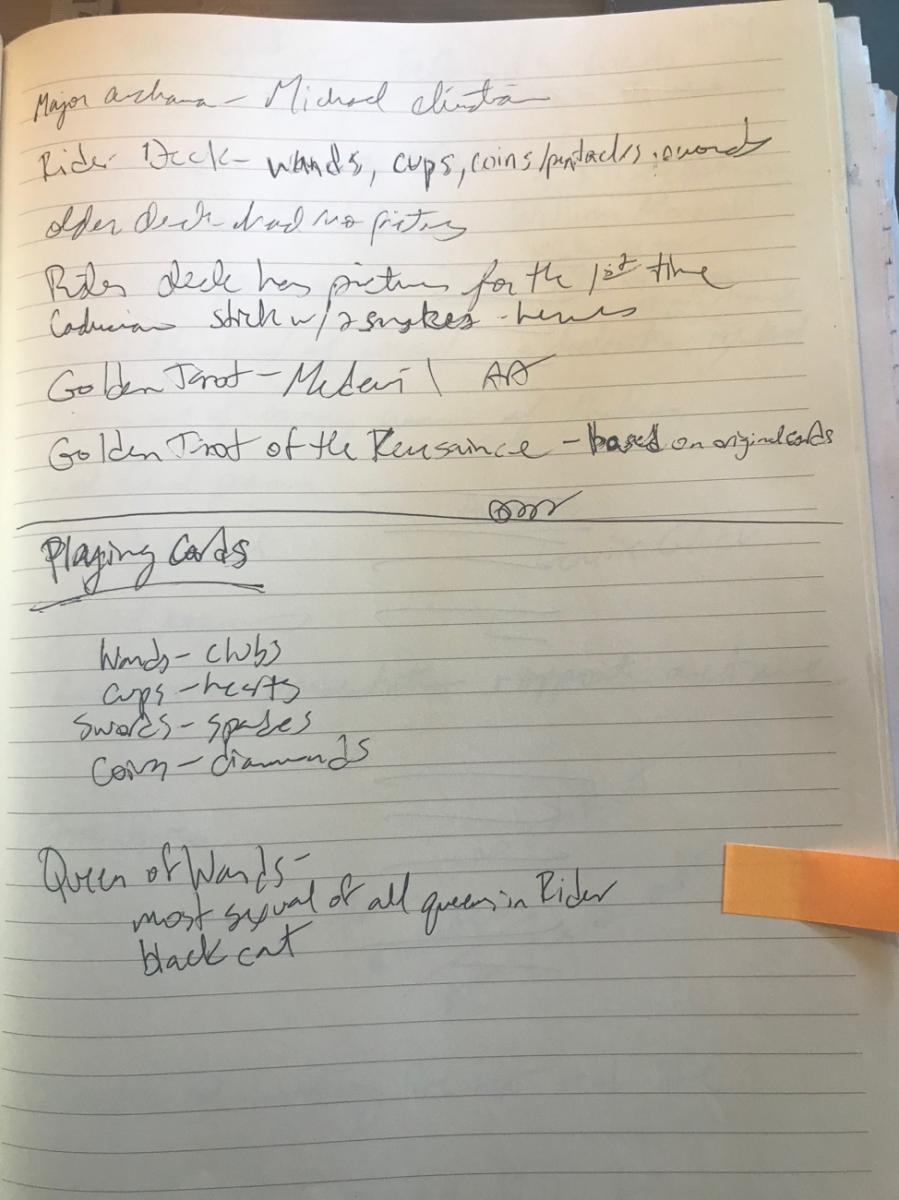 Major archana - Michael
Rider Deck - wands, cups, coins/pentacles, swords
older deck had no pictures
Rider deck has pictures for the 1st time
stick w/2 snakes - hermes
Golden Tarot - Medevil
Golden Tarot of the Rensaince - based on original cards
Playing Cards
Wands - clubs
Cups - hearts
Swords - spades
Coins - diamonds
Queen of Wands -
most sexual of all queens in Rider
black cat